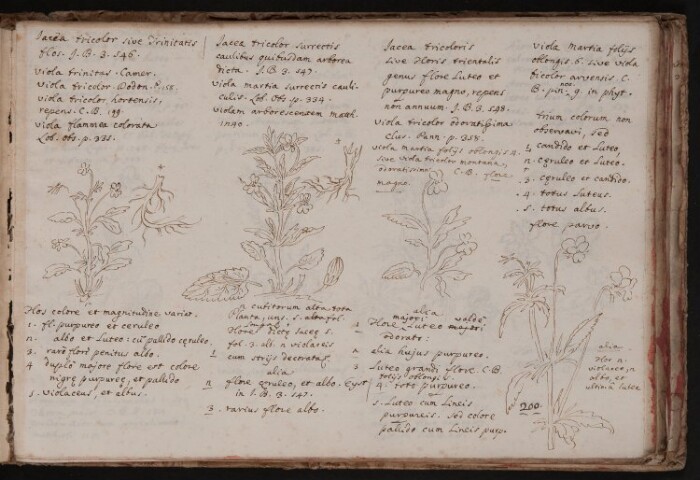 Jacea tricolor sive Trinitatis
flos. J. B. 3. 546.
viola trinitas. Camer.
viola tricolor. Dodon.
viola tricolor hortensis,
repens. C. B. 199.
viola flammea colorata
Lob. obs. p. 335.
Flos colore et magnitudine variat.
1. fl. purpureo et ceruleo
2. albo et Luteo: cũ pallido ceruleo.
3. raro flori penitus albo.
4 duplo majore flore est colore
nigro purpureo, et pallido
5. violaceus, et albus.
Jacea tricolor surrectis
caulibus quibusdam arborea
dicta. J. B. 3. 547.
viola martia surrectis cauli-
culis. Lob. obs. p. 334.
violam arborescentem matth.
cubitorum alta tota
planta,
Flore
fol. 2. alb. 2 violaceis
cum strijs
alia
2 flore ceruleo, et albo. Eyst
in J. B. 3. 547.
3. rarius flore albo.
Jacea tricoloris
sive floris trientalis
genus flore Luteo et
purpureo magno, repens
non annuum. J. B. 3. 548.
viola tricolor odoratissima
Clus. Pann. p. 358.
viola martia folijs oblongis 4.
sive viola tricolor montana,
odoratissima C. B. flore
magno
alia
majori valde
Flore Luteo majori
odorato:
2 alia hujus purpureo.
3 Luteo grandi flore. C. B.
folijs oblongis
4. toto purpureo.
5. Luteo cum Lineis
purpureis. Sed colore
pallido cum Lineis purp.
viola martia folijs
oblongis. 6. sive viola
tricolor arvensis. C.
B. pin. 9. in phyt.
trium colorum non
observavi, sed
1 candido et Luteo,
2 ceruleo et Luteo.
3. ceruleo et candido.
4. totus Luteus.
5. totus albus.
flore parvo.
alia.
flos 2.
violaceis
albo, et
ultimia Lutea
200.